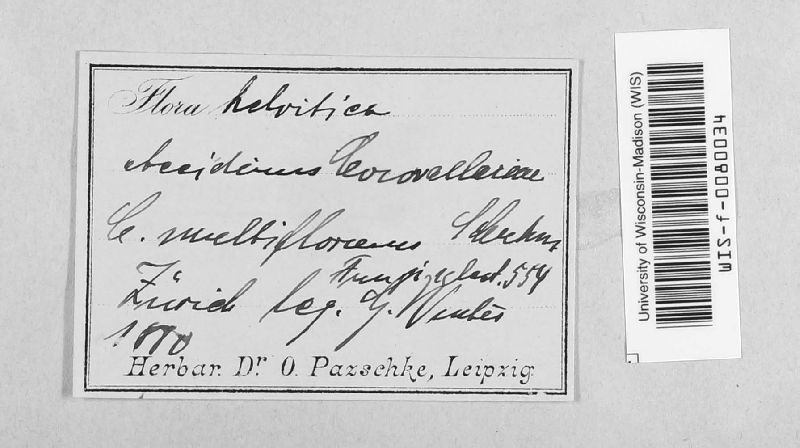 Flora helvitica
Aecidium Convallariae
C. multiflorum
Fungi 554
Zürich leg. G. Winter
1880
Herbar. Dr O. Pazschke, Leipzig.
University of Wisconsin-Madison (WIS)
WIS-f-0080034